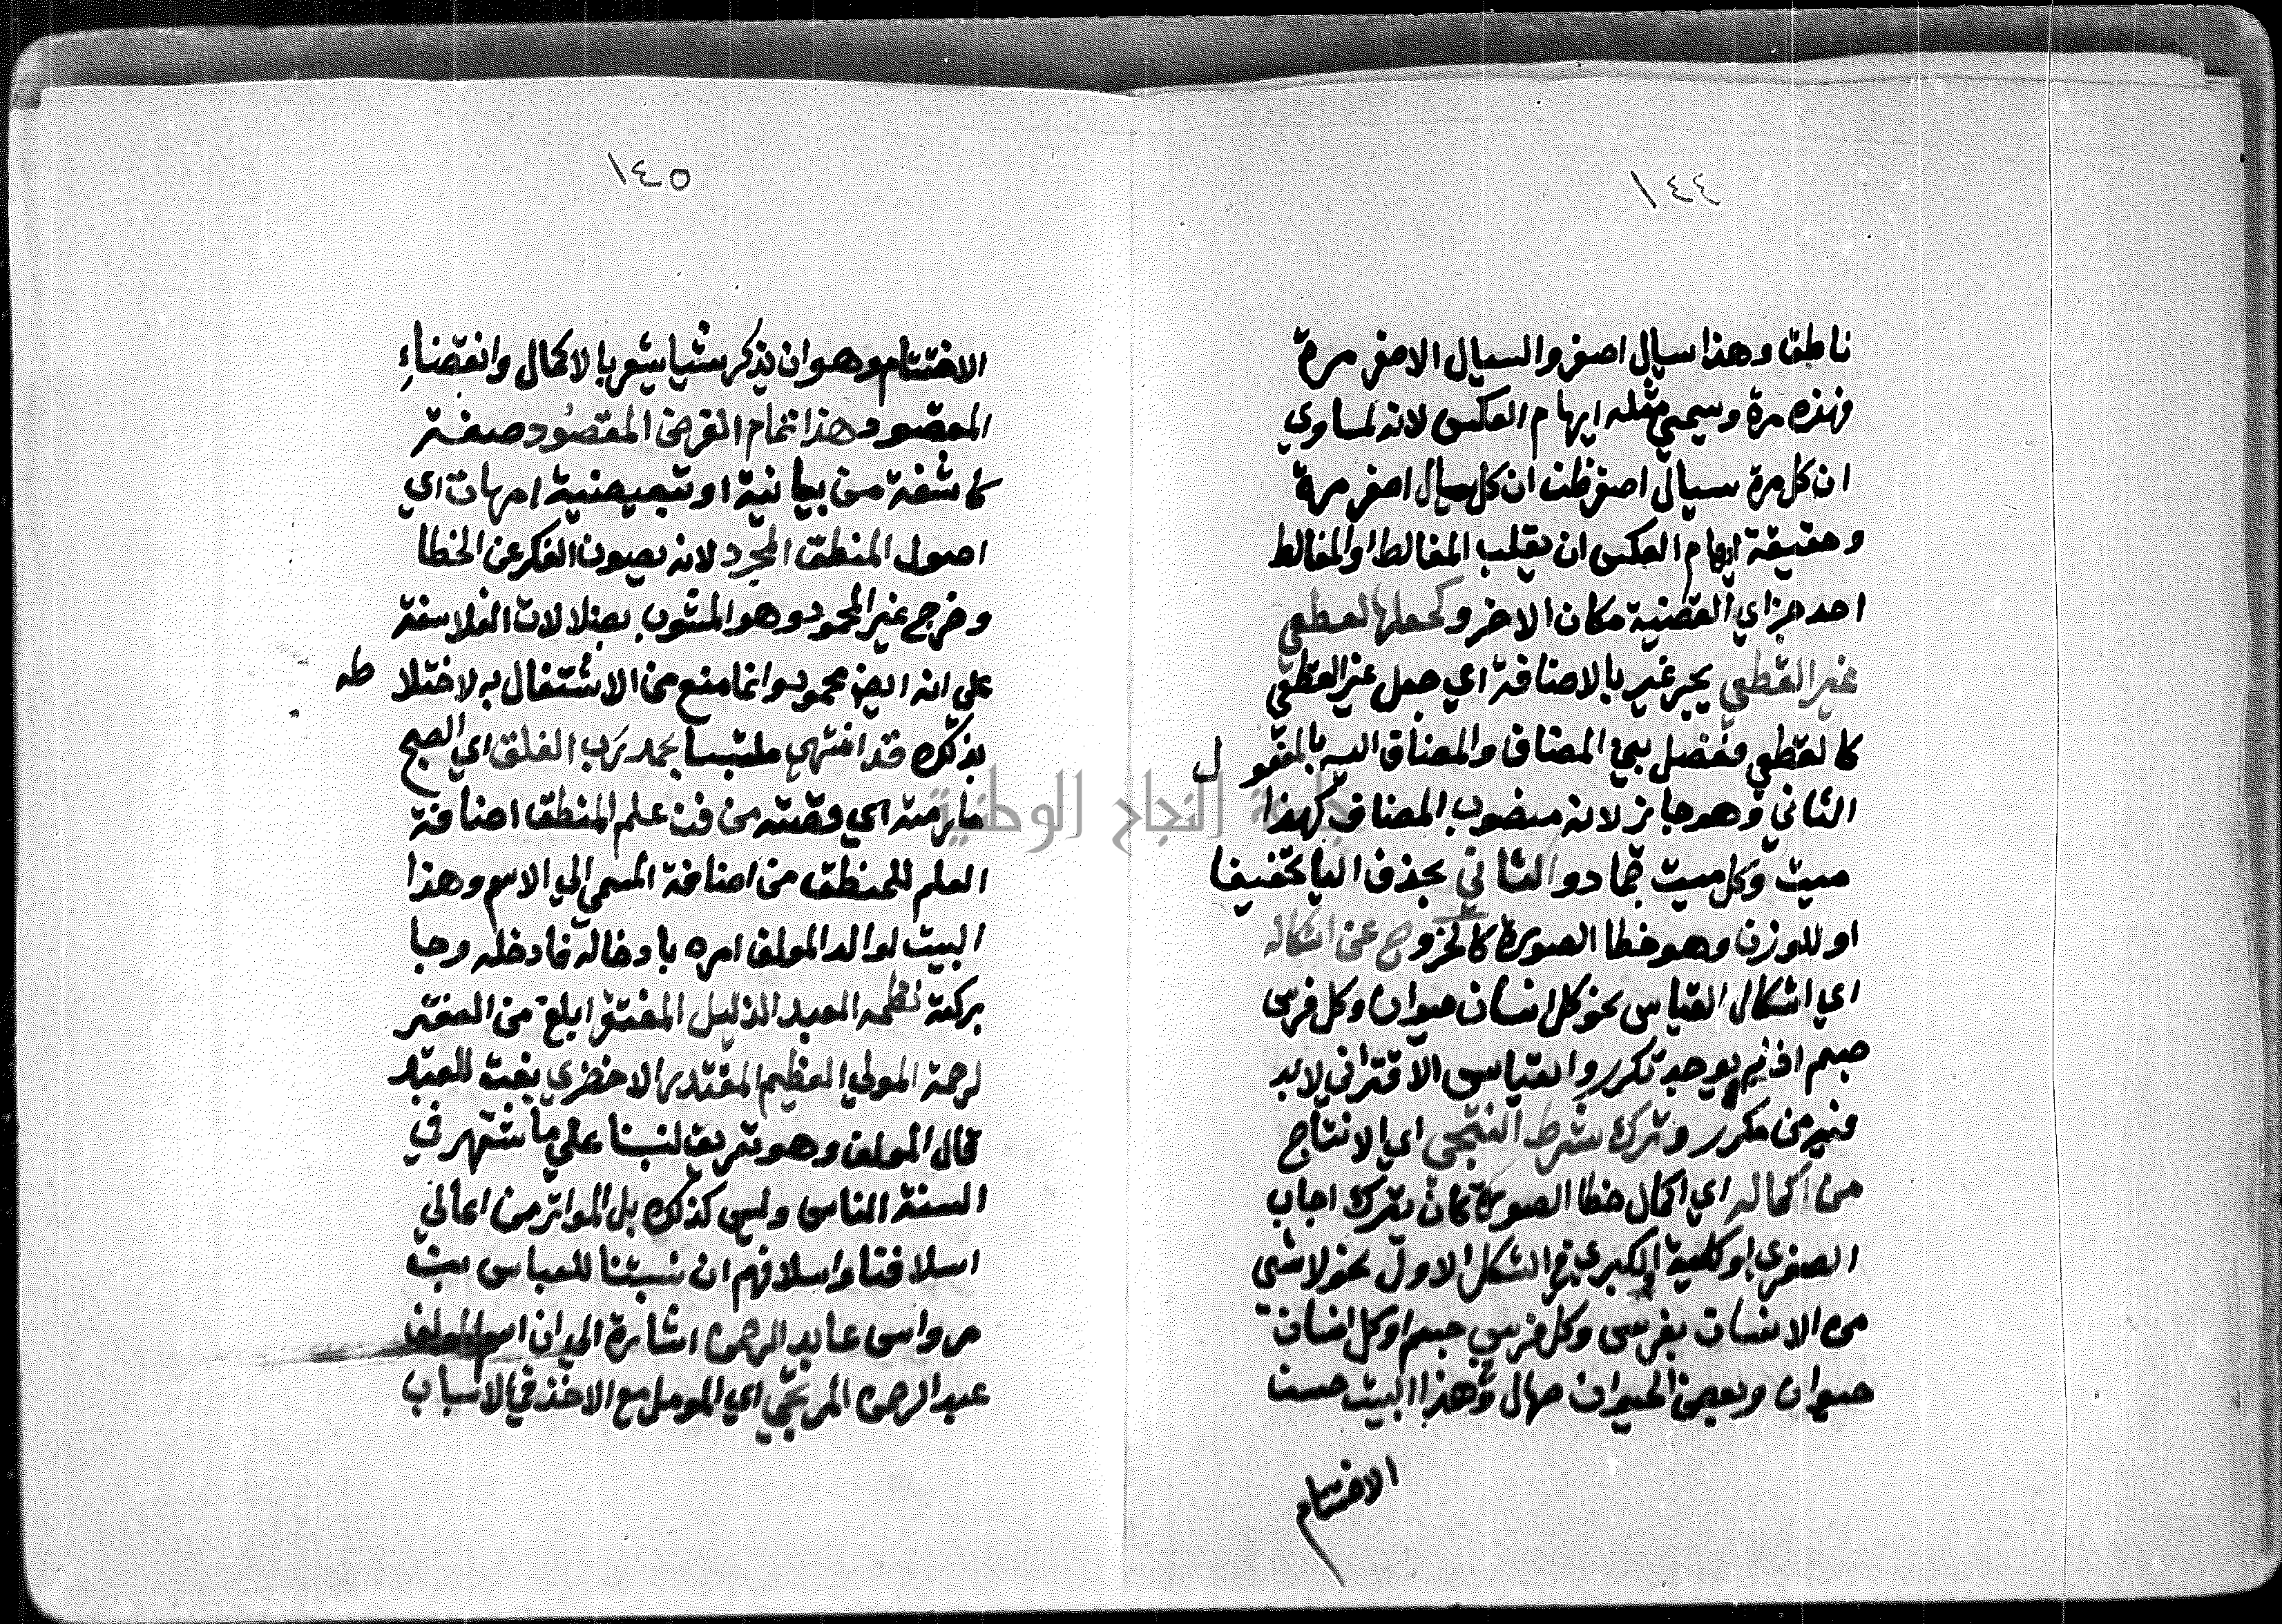 ١٤٤
ناطق وهذا سيال اصفر والسيال الاصفر مرة
فهذه مرة وسيمي مثله ايهام العكس لانه لماوي
ان كل مرة سيال اصفر ظن ان كل سيال اصفر مرة
وحقيقة ايهام العكس ان يقلب المغالط او المغالط
احد جزاي القضية مكان الاخر وكجعلها لقطعي
غير القطعي يجر غير بالاضافة اي جعل غير القطعي
كالقطعي وفصل بين المضاف والمضاف اليه بالمفعول
الثاني وهو جايز لانه منصوب المضاف كهذا
ميت وكل ميت جماد والثان بحذف اليا تخفيفا
او للوزن وهو خطا الصورة كالخروج عن اشكاله
اي اشكال القياس نحو كل انسان حيوان وكل فرس
جسم اذ لم يوجد تكرر والقياس الاقتراني لابد
فيه من مكرر وترك شرط النتجي اي الانتاج
من اكماله اي اكمال خطا الصورة كان يترك اجاب
الصغري او كلية الكبري في الشكل الاول نحو لا شي
من الانسان بفرس وكل فرس جسم او كل انسان
حيوان وبعض الحيوان صهال وهذا البيت حسن
الاختتام
١٤٥
الاختتام وهو ان يذكر شيا يشعر بالاكمال وانقضاء
المقصود هذا تمام الغرض المقصود صفة
كاشفة من بيانية او تبعيضية امهات اي
اصول المنطق المحمود لانه يصون الفكر عن الخطا
وخرج غير المحمود وهو المشوب بضلالات الفلاسفة
علي انه ايض محمود وانما منع من الاشتغال به لاختلاطه
بذلك قد انتهي ملتبسا بحمد رب الفلق اي الصبح
مارمته اي وقته من فن علم المنطق اضافة
العلم للمنطق من اضافة المسمي الي الاسم وهذا
البيت لوالد المولف امره بادخاله فادخله رجا
بركته نظمه العبد الذليل المفتقر ابلغ من الفقير
لرحمة المولي العظيم المقتدر الاخضري نعت للعبد
قال المولف وهو تعريف لنسبنا علي ما اشتهر في
السنة الناس وليس كذلك بل المواتر من اعالي
اسلافنا واسلافهم ان نسبتنا للعباس بن
مرداس عابد الرحمن اشارة الي ان اسم المولف
عبد الرحمن المرتجي اي المومل مع الاخذ في الاسباب